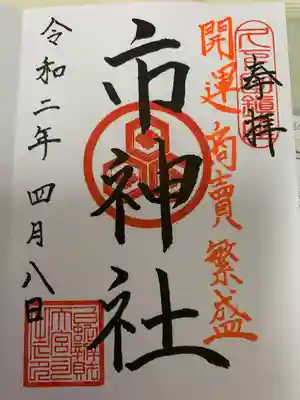 奉拝
開運商賣繁盛
市神社
令和二年四月八日